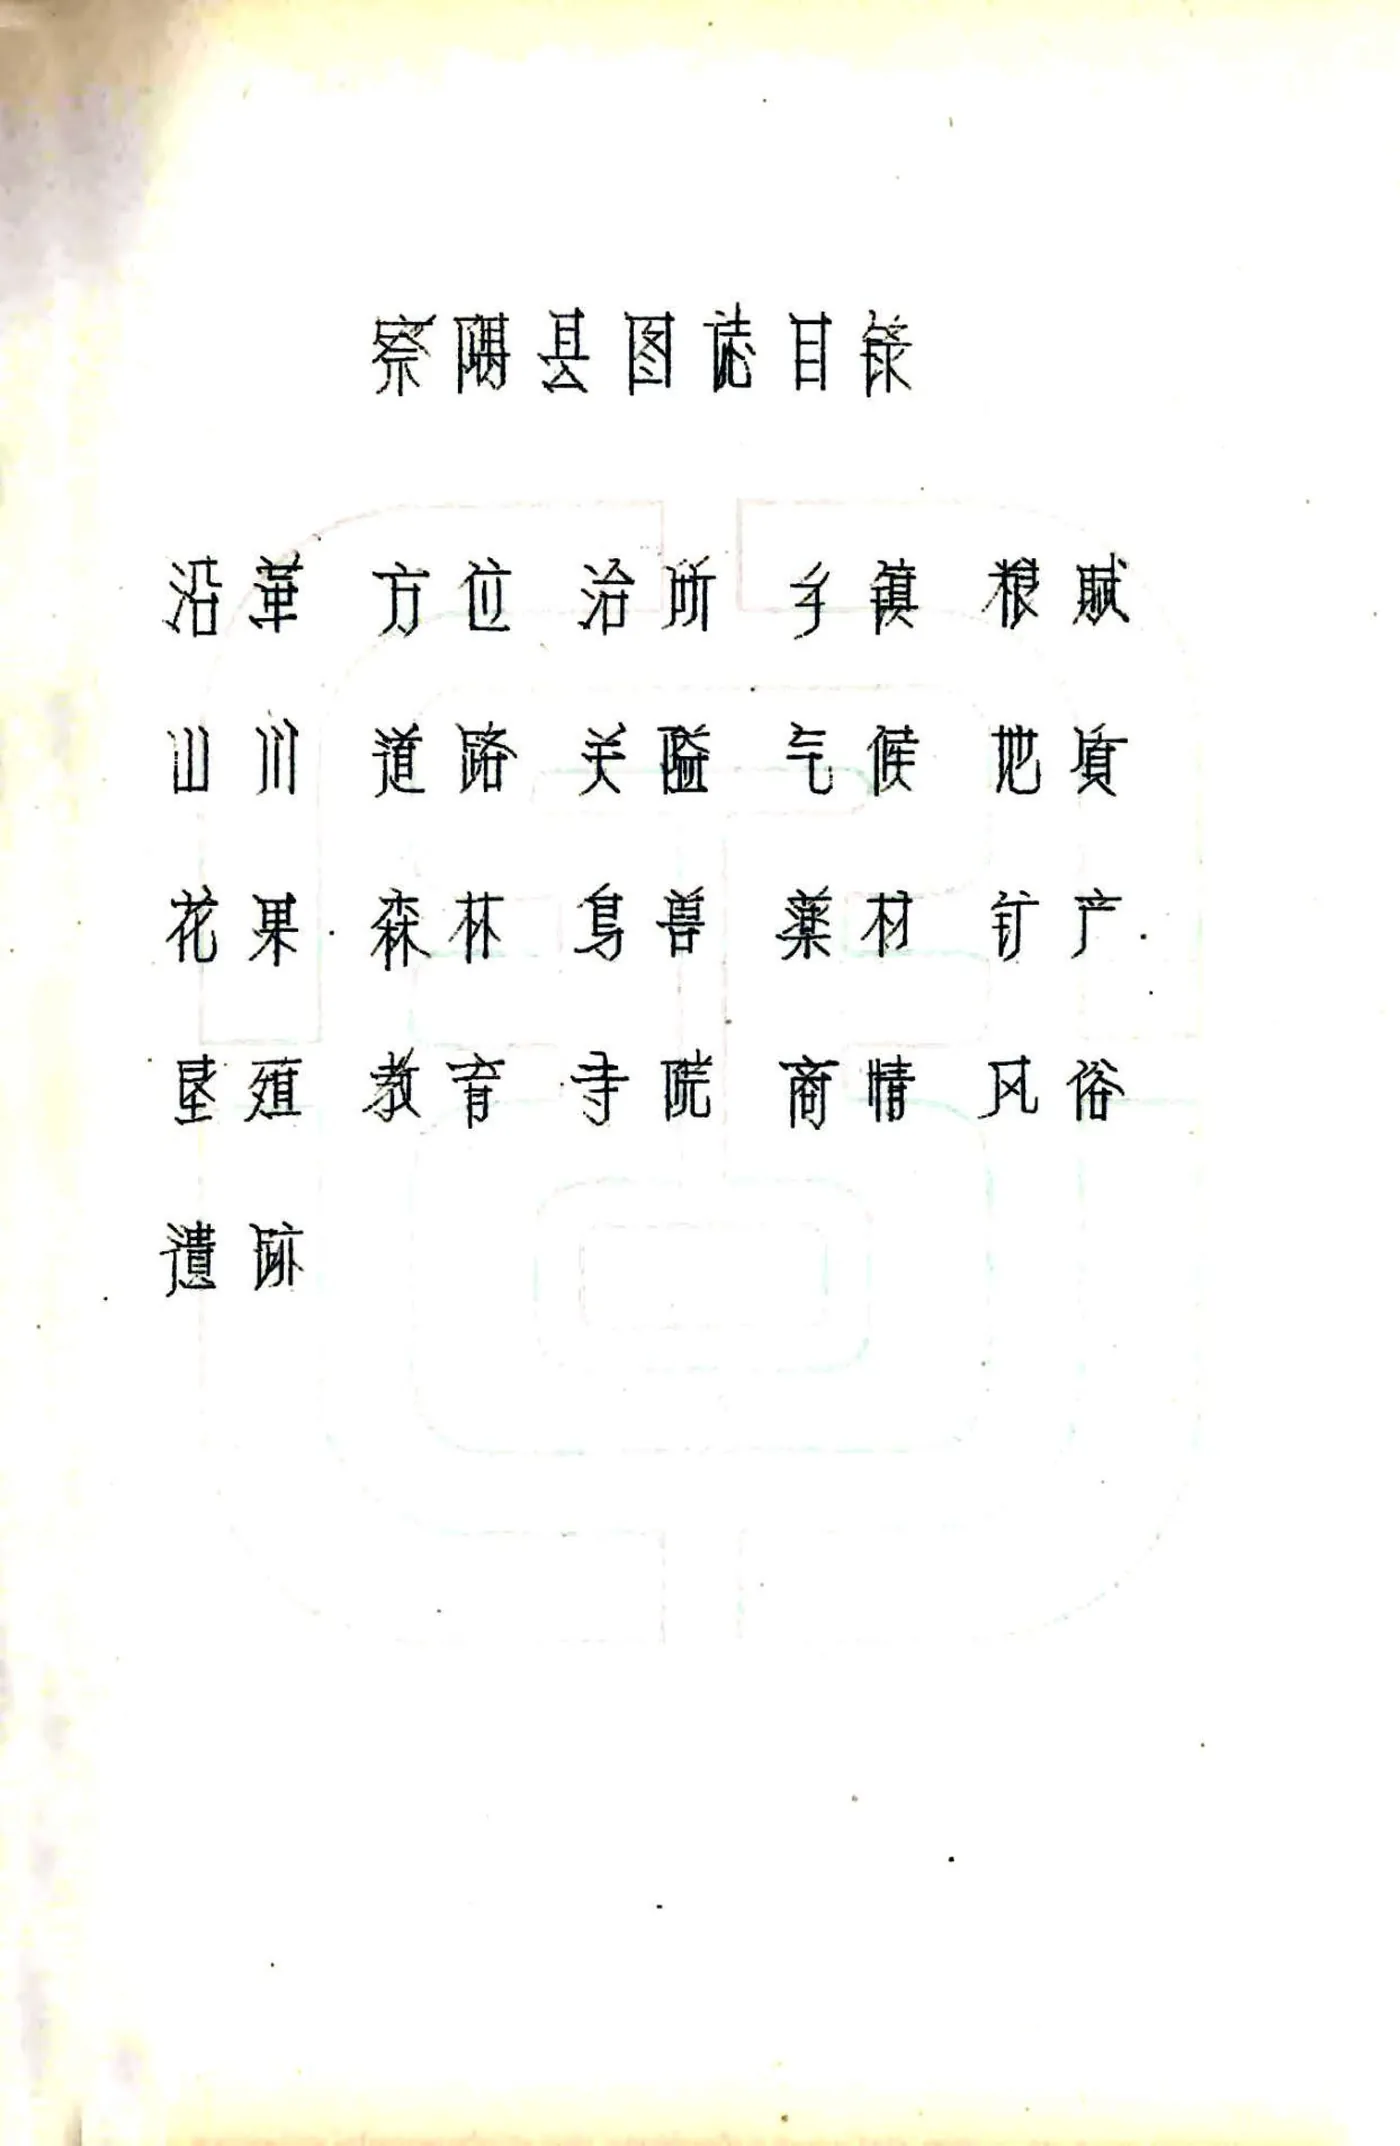 察隅县图志目录
沿革 方位 治所 乡镇 粮赋
山川 道路 关隘 气候 地㑔
花果 森林 鸟兽 药材 矿产
垦殖 教育 寺院 商情 风俗
遗跡